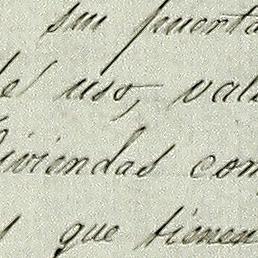 sin puerta
de uso, val
viviendas con
que tienen